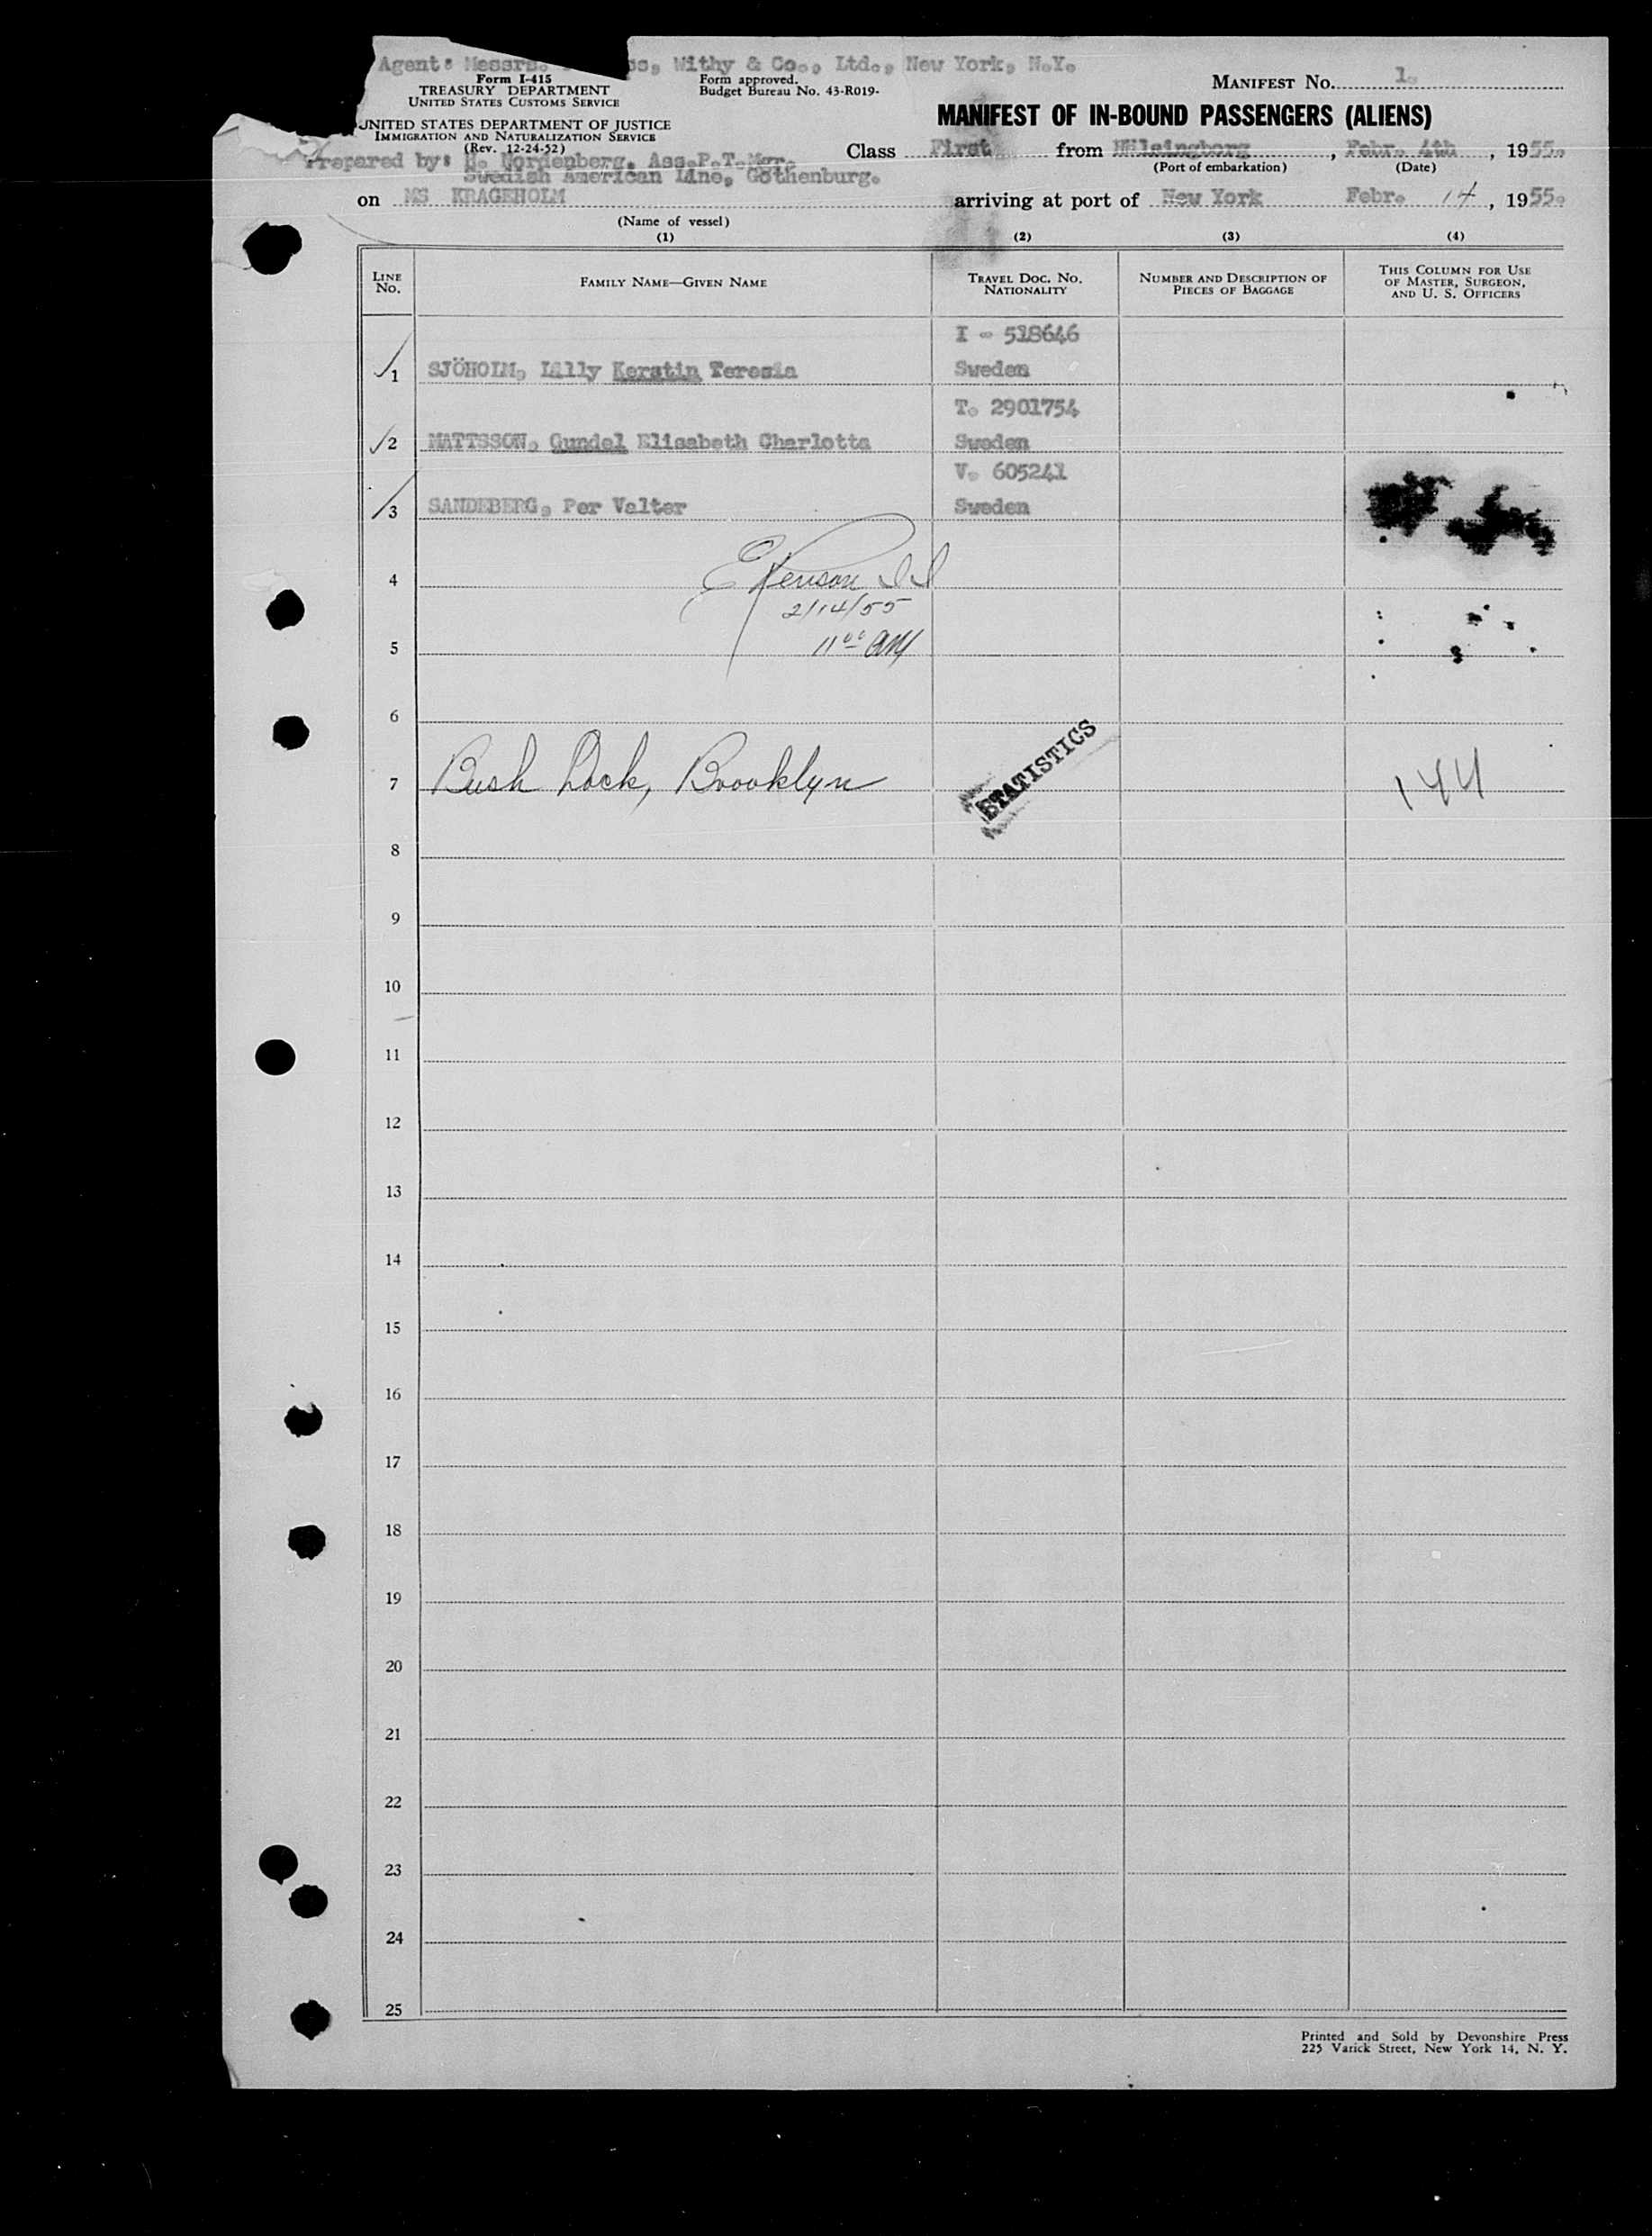 Agent: Messrs. ss, Withy & Co., Ltd., New York, N.Y.
Form I-415
TREASURY DEPARTMENT
UNITED STATES CUSTOMS SERVICE
Form approved.
Budget Bureau No. 43-R019-
MANIFEST No. 1.
UNITED STATES DEPARTMENT OF JUSTICE
IMMIGRATION AND NATURALIZATION SERVICE
(Rev. 12-24-52)
MANIFEST OF IN-BOUND PASSENGERS (ALIENS)
Prepared by: H. Nordenberg, Ass.P.T.Mgr.
Swedish American Line, Gothenburg.
Class First from Hälsingborg, Febr. 4th, 1955.
(Port of embarkation) (Date)
on MS KRAGEHOLM arriving at port of New York Febr. 14, 1955.
(Name of vessel)
(1) (2) (3) (4)
LINE No. FAMILY NAME—GIVEN NAME TRAVEL DOC. NO. NATIONALITY NUMBER AND DESCRIPTION OF PIECES OF BAGGAGE THIS COLUMN FOR USE OF MASTER, SURGEON, AND U. S. OFFICERS
I - 518646
1 SJÖHOLM, Lilly Kerstin Teresia Sweden
T. 2901754
2 MATTSSON, Gundel Elisabeth Charlotta Sweden
V. 605241
3 SANDEBERG, Per Valter Sweden
4
2/14/55
1100 AM
5
6
STATISTICS
7 Bush Dock, Brooklyn 144
8
9
10
11
12
13
14
15
16
17
18
19
20
21
22
23
24
25
Printed and Sold by Devonshire Press
225 Varick Street, New York 14, N. Y.